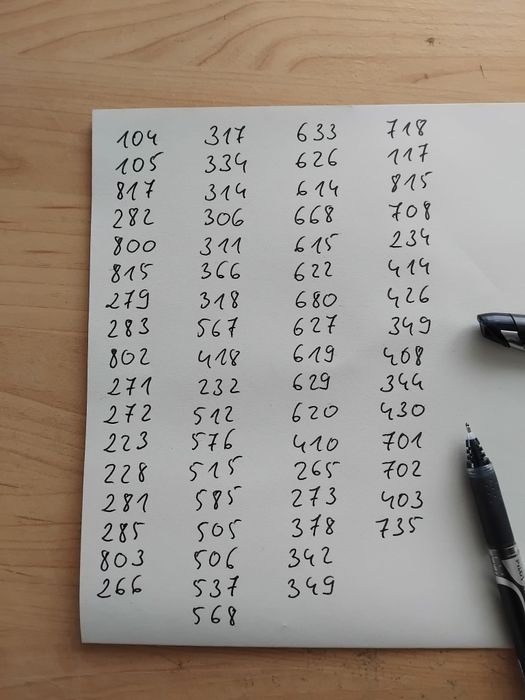 104 317 633 718
105 334 626 117
817 314 614 815
282 306 668 708
800 311 615 234
815 366 622 414
279 318 680 426
283 567 627 349
802 418 619 408
271 232 629 344
272 512 620 430
223 576 410 701
228 515 265 702
281 585 273 403
285 505 378 735
803 506 342
266 537 349
568